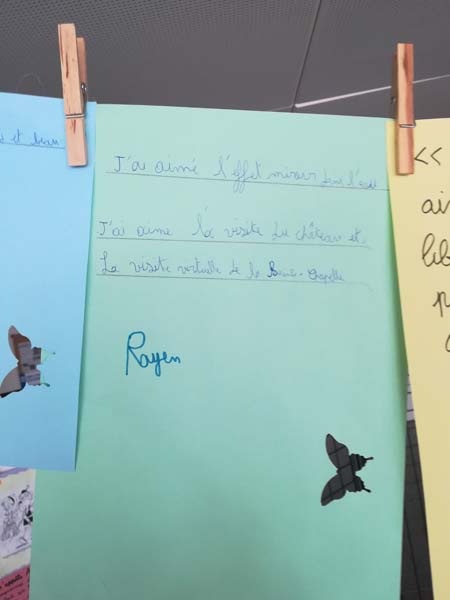 et beau
J'ai aimé l'effet miroir dans l'eau
J'ai aimé la visite du château et
La visite virtuelle de la Sainte-Chapelle
Rayen
<<